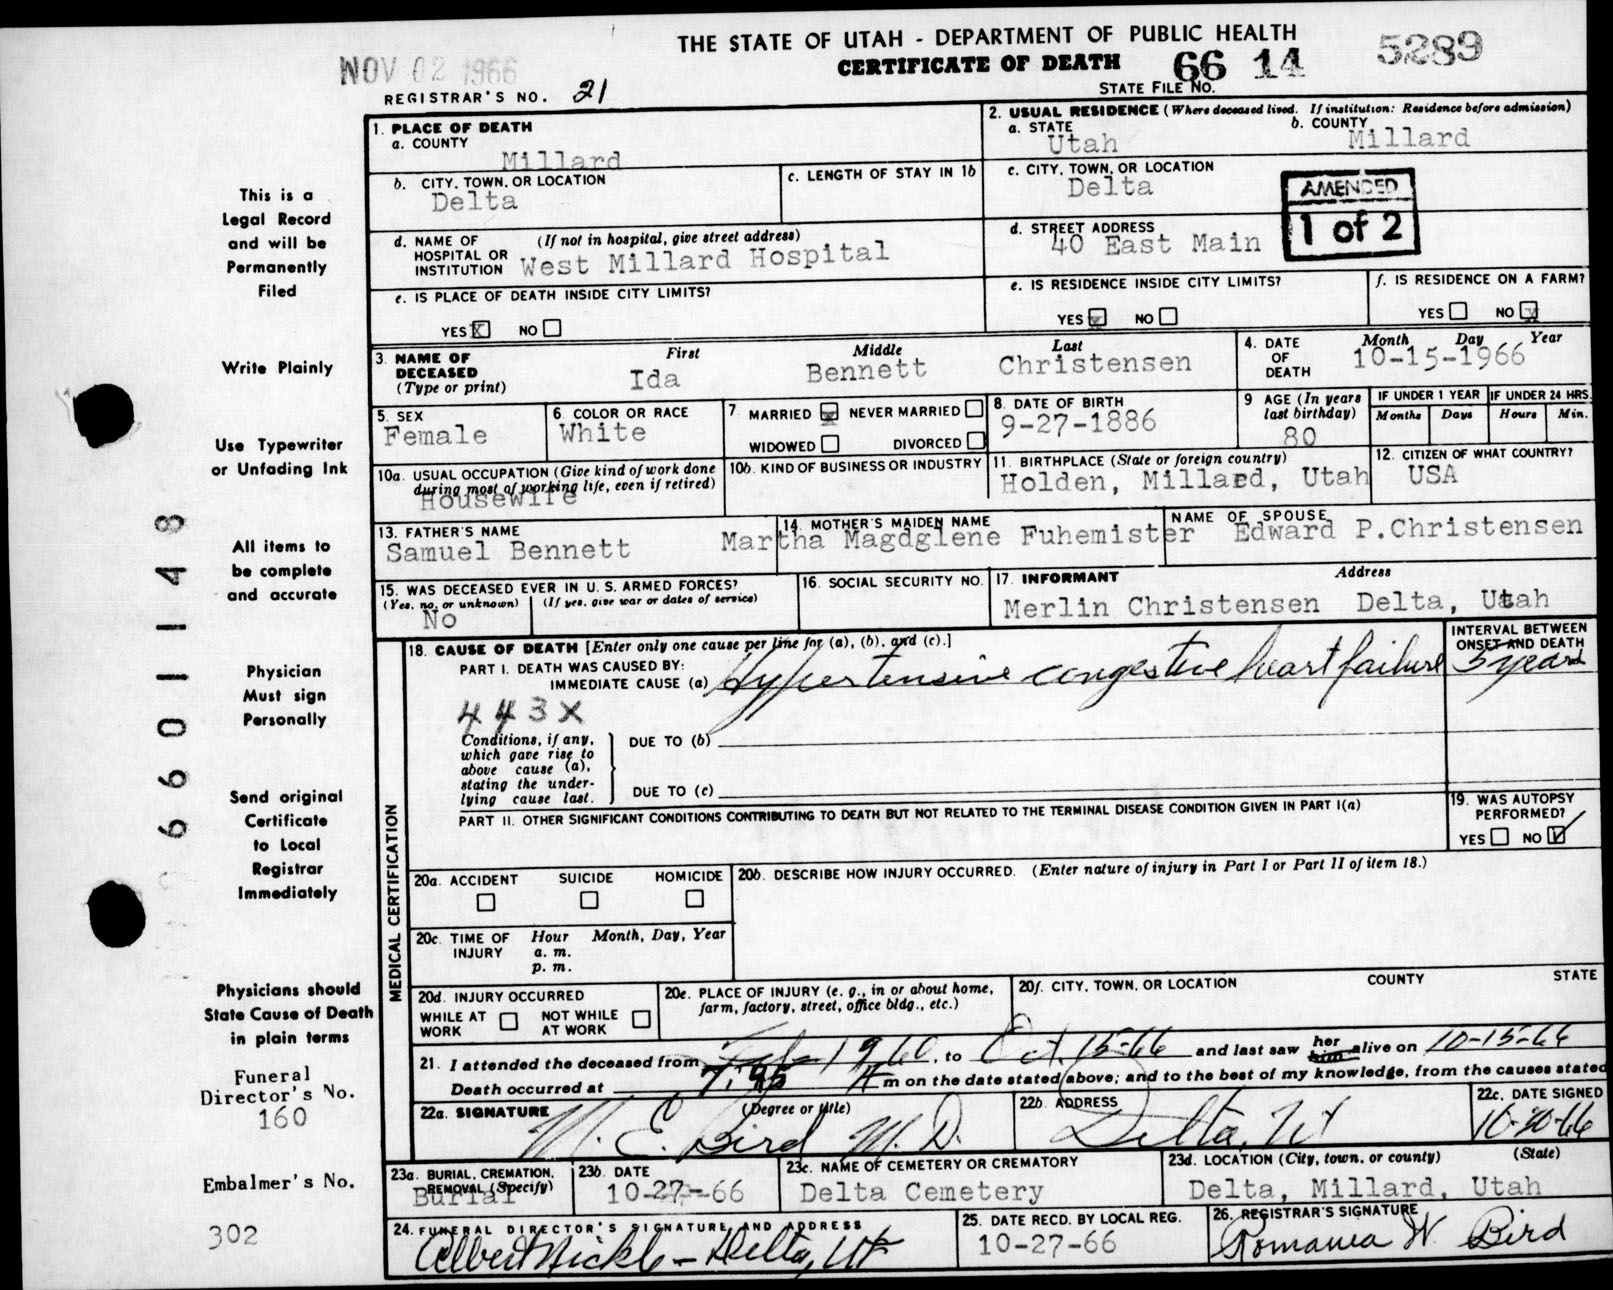 THE STATE OF UTAH - DEPARTMENT OF PUBLIC HEALTH
CERTIFICATE OF DEATH 66 14 5289
NOV 02 1966
REGISTRAR'S NO. 21
STATE FILE NO.
This is a
Legal Record
and will be
Permanently
Filed
Write Plainly
Use Typewriter
or Unfading Ink
All items to
be complete
and accurate
Physician
Must sign
Personally
Send original
Certificate
to Local
Registrar
Immediately
Physicians should
State Cause of Death
in plain terms
Funeral
Director's No.
160
Embalmer's No.
302
6601148
1. PLACE OF DEATH
a. COUNTY
Millard
b. CITY, TOWN, OR LOCATION
Delta
c. LENGTH OF STAY IN 1b
d. NAME OF HOSPITAL OR INSTITUTION (If not in hospital, give street address)
West Millard Hospital
e. IS PLACE OF DEATH INSIDE CITY LIMITS?
YES X NO
2. USUAL RESIDENCE (Where deceased lived. If institution: Residence before admission)
a. STATE
Utah
b. COUNTY
Millard
c. CITY, TOWN, OR LOCATION
Delta
AMENDED
1 of 2
d. STREET ADDRESS
40 East Main
e. IS RESIDENCE INSIDE CITY LIMITS?
YES X NO
f. IS RESIDENCE ON A FARM?
YES NO X
3. NAME OF DECEASED (Type or print)
First Middle Last
Ida Bennett Christensen
4. DATE OF DEATH Month Day Year
10-15-1966
5. SEX
Female
6. COLOR OR RACE
White
7. MARRIED X NEVER MARRIED
WIDOWED DIVORCED
8. DATE OF BIRTH
9-27-1886
9 AGE (In years last birthday)
80
IF UNDER 1 YEAR
Months Days
IF UNDER 24 HRS.
Hours Min.
10a. USUAL OCCUPATION (Give kind of work done during most of working life, even if retired)
Housewife
10b. KIND OF BUSINESS OR INDUSTRY
11. BIRTHPLACE (State or foreign country)
Holden, Millard, Utah
12. CITIZEN OF WHAT COUNTRY?
USA
13. FATHER'S NAME
Samuel Bennett
14. MOTHER'S MAIDEN NAME
Martha Magdglene Fuhemister
NAME OF SPOUSE
Edward P.Christensen
15. WAS DECEASED EVER IN U. S. ARMED FORCES?
(Yes, no, or unknown) (If yes, give war or dates of service)
No
16. SOCIAL SECURITY NO.
17. INFORMANT Address
Merlin Christensen Delta, Utah
MEDICAL CERTIFICATION
18. CAUSE OF DEATH [Enter only one cause per line for (a), (b), and (c).]
INTERVAL BETWEEN ONSET AND DEATH
PART I. DEATH WAS CAUSED BY:
IMMEDIATE CAUSE (a) Hypertensive congestive heart failure 5 years
443X
Conditions, if any, which gave rise to above cause (a), stating the underlying cause last.
DUE TO (b)
DUE TO (c)
PART II. OTHER SIGNIFICANT CONDITIONS CONTRIBUTING TO DEATH BUT NOT RELATED TO THE TERMINAL DISEASE CONDITION GIVEN IN PART I(a)
19. WAS AUTOPSY PERFORMED?
YES NO
20a. ACCIDENT SUICIDE HOMICIDE
20b. DESCRIBE HOW INJURY OCCURRED. (Enter nature of injury in Part I or Part II of item 18.)
20c. TIME OF INJURY Hour Month, Day, Year
a. m.
p. m.
20d. INJURY OCCURRED
WHILE AT WORK NOT WHILE AT WORK
20e. PLACE OF INJURY (e. g., in or about home, farm, factory, street, office bldg., etc.)
20f. CITY, TOWN, OR LOCATION COUNTY STATE
21. I attended the deceased from Feb 1960, to Oct. 15-66 and last saw her him alive on 10-15-66
Death occurred at m on the date stated above; and to the best of my knowledge, from the causes stated
22a. SIGNATURE (Degree or title)
M. E. Bird M. D.
22b. ADDRESS
Delta, Ut
22c. DATE SIGNED
10-20-66
23a. BURIAL, CREMATION, REMOVAL (Specify)
Burial
23b. DATE
10-27-66
23c. NAME OF CEMETERY OR CREMATORY
Delta Cemetery
23d. LOCATION (City, town, or county) (State)
Delta, Millard, Utah
24. FUNERAL DIRECTOR'S SIGNATURE AND ADDRESS
Albert Nickle - Delta, Ut
25. DATE RECD. BY LOCAL REG.
10-27-66
26. REGISTRAR'S SIGNATURE
Romania W. Bird